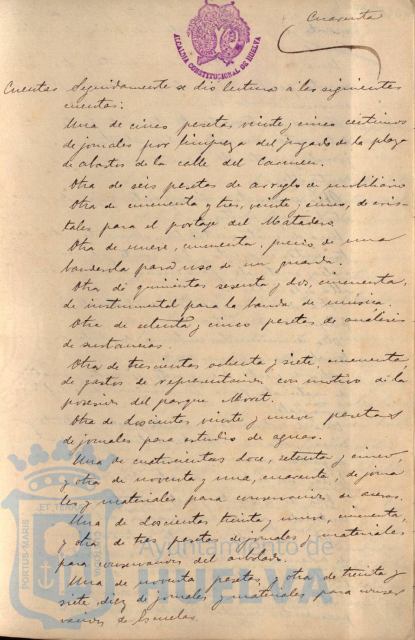 Cuarenta
ALCALDIA CONSTITUCIONAL DE HUELVA
Cuentas Seguidamente se dio lectura á las siguientes
cuentas:
Una de cinco pesetas veinte y cinco centimos
de jornales por limpieza del juzgado de la plaza
de abastos de la calle del Carmen.
Otra de seis pesetas de arreglo de mobiliario
Otra de cincuenta y tres, veinte y cinco, de cris-
tales para el portage del Matadero
Otra de nueve, cincuenta, precio de una
banderola para uso de un guarda.
Otra de quinientas sesenta y dos, cincuenta,
de instrumental para la banda de música.
Otra de setenta y cinco pesetas de análisis
de sustancias.
Otra de trescientas ochenta y siete, cincuenta
de gastos de representacion con motivo de la
posesion del parque Morat.
Otra de doscientas veinte y nueve pesetas
de jornales para estudio de aguas.
Una de cuatrocientas doce, setenta y cinco
y otra de noventa y una, cuarenta, de jorna
les y materiales para conservacion de aceras.
Una de doscientas treinta y nueve, cincuenta,
y otra de tres pesetas de jornales y materiales
para conservacion del arbolado.
Una de noventa pesetas y otra de treinta y
siete, diez de jornales y materiales para conser
vacion de Escuelas.
PORTUS MARIS
ET
Ayuntamiento de
HUELVA